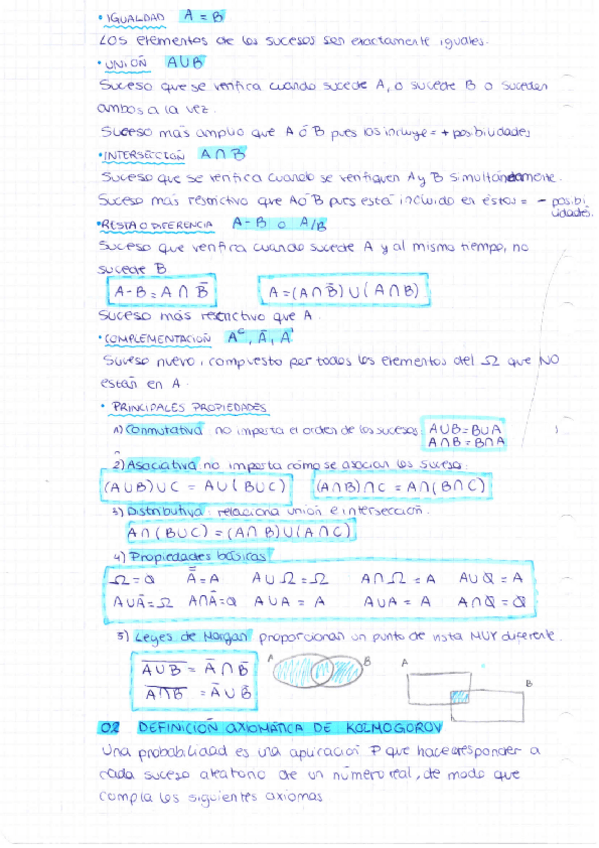 • IGUALDAD A = B
LOS elementos de los sucesos son exactamente iguales.
• UNIÓN A∪B
Suceso que se verifica cuando sucede A, o sucede B o suceden
ambos a la vez.
Suceso más amplio que A ó B pues los incluye = + posibilidades
• INTERSECCIÓN A∩B
Suceso que se verifica cuando se verifiquen A y B simultáneamente.
Suceso más restrictivo que A ó B pues está incluido en éstos = - posibi
lidades.
• RESTA O DIFERENCIA A-B o A/B
Suceso que verifica cuando sucede A y al mismo tiempo, no
sucede B
A-B = A ∩ B̄ A = (A∩B̄) ∪ (A∩B)
Suceso más restrictivo que A.
• COMPLEMENTACIÓN Aᶜ, Ā, A'
Suceso nuevo, compuesto por todos los elementos del Ω que NO
están en A.
• PRINCIPALES PROPIEDADES
1) Conmutativa: no importa el orden de los sucesos: A∪B = B∪A
A∩B = B∩A
2) Asociativa: no importa cómo se asocian los suceso.
(A∪B)∪C = A∪(B∪C) (A∩B)∩C = A∩(B∩C)
3) Distributiva: relaciona unión e intersección.
A∩(B∪C) = (A∩B)∪(A∩C)
4) Propiedades básicas
Ω̄ = Ø A̿ = A A∪Ω = Ω A∩Ω = A A∪Ø = A
A∪Ā = Ω A∩Ā = Ø A∪A = A A∪A = A A∩Ø = Ø
5) Leyes de Morgan: proporcionan un punto de vista MUY diferente.
A B A
A̅∪̅B̅ = Ā∩B̄
B
A̅∩̅B̅ = Ā∪B̄
02 DEFINICIÓN AXIOMÁTICA DE KOLMOGOROV
Una probabilidad es una aplicación P que hace responder a
cada suceso aleatorio de un número real, de modo que
cumpla los siguientes axiomas